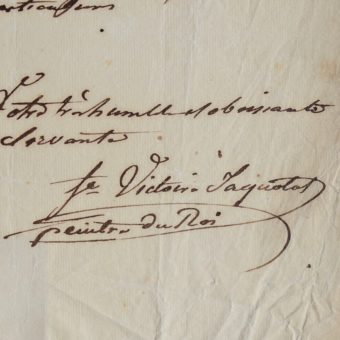 Votre très humble et obeissante
Servante
fe Victoire Jaquotot
peintre du Roi